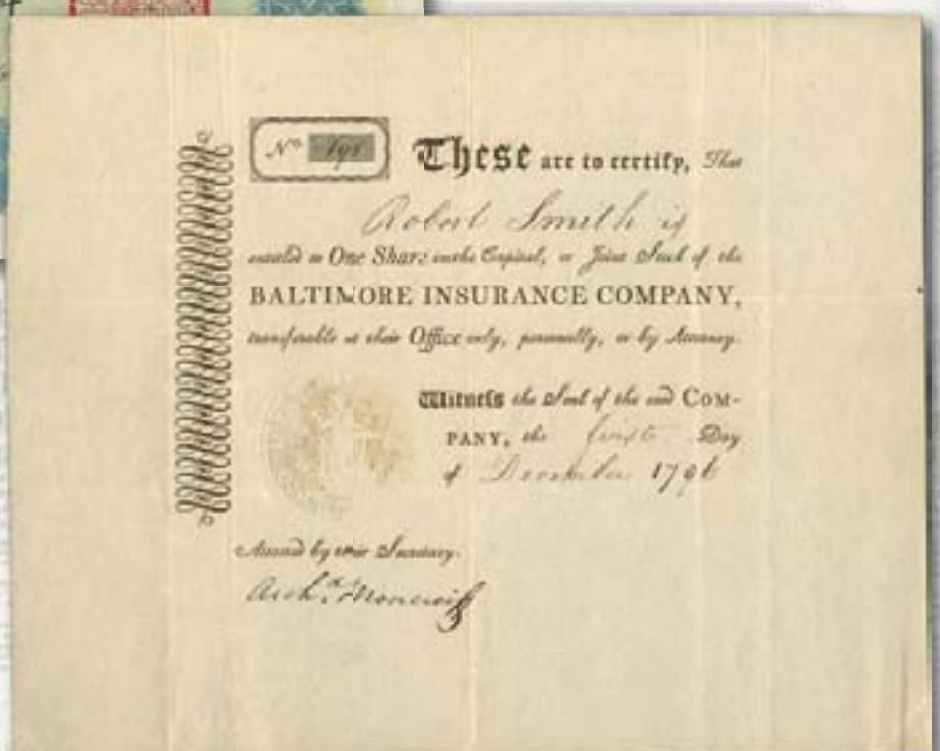 No 191
These are to certify, That
Robert Smith is
entitled to One Share in the Capital, or Joint Stock of the
BALTIMORE INSURANCE COMPANY,
transferable at their Office only, personally, or by Attorney.
Witness the Seal of the said COM-
PANY, the first Day
of December 1796
Attested by their Secretary.
Archd. Moncrieff